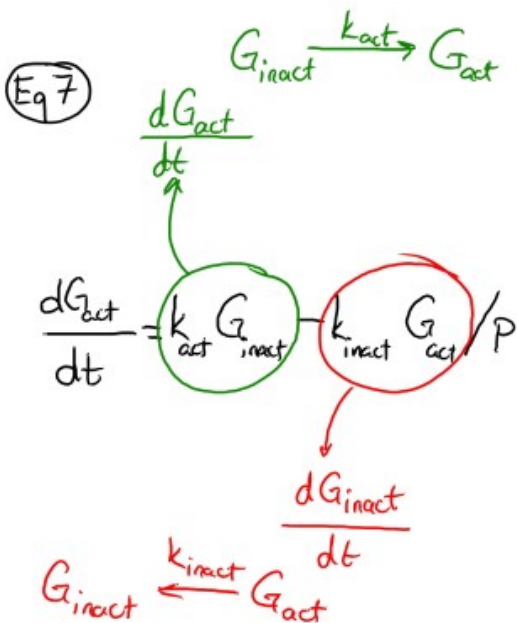 G_inact —k_act→ G_act
Eq 7
dG_act
dt
dG_act/dt = k_act G_inact − k_inact G_act / P
dG_inact
dt
G_inact ←k_inact— G_act